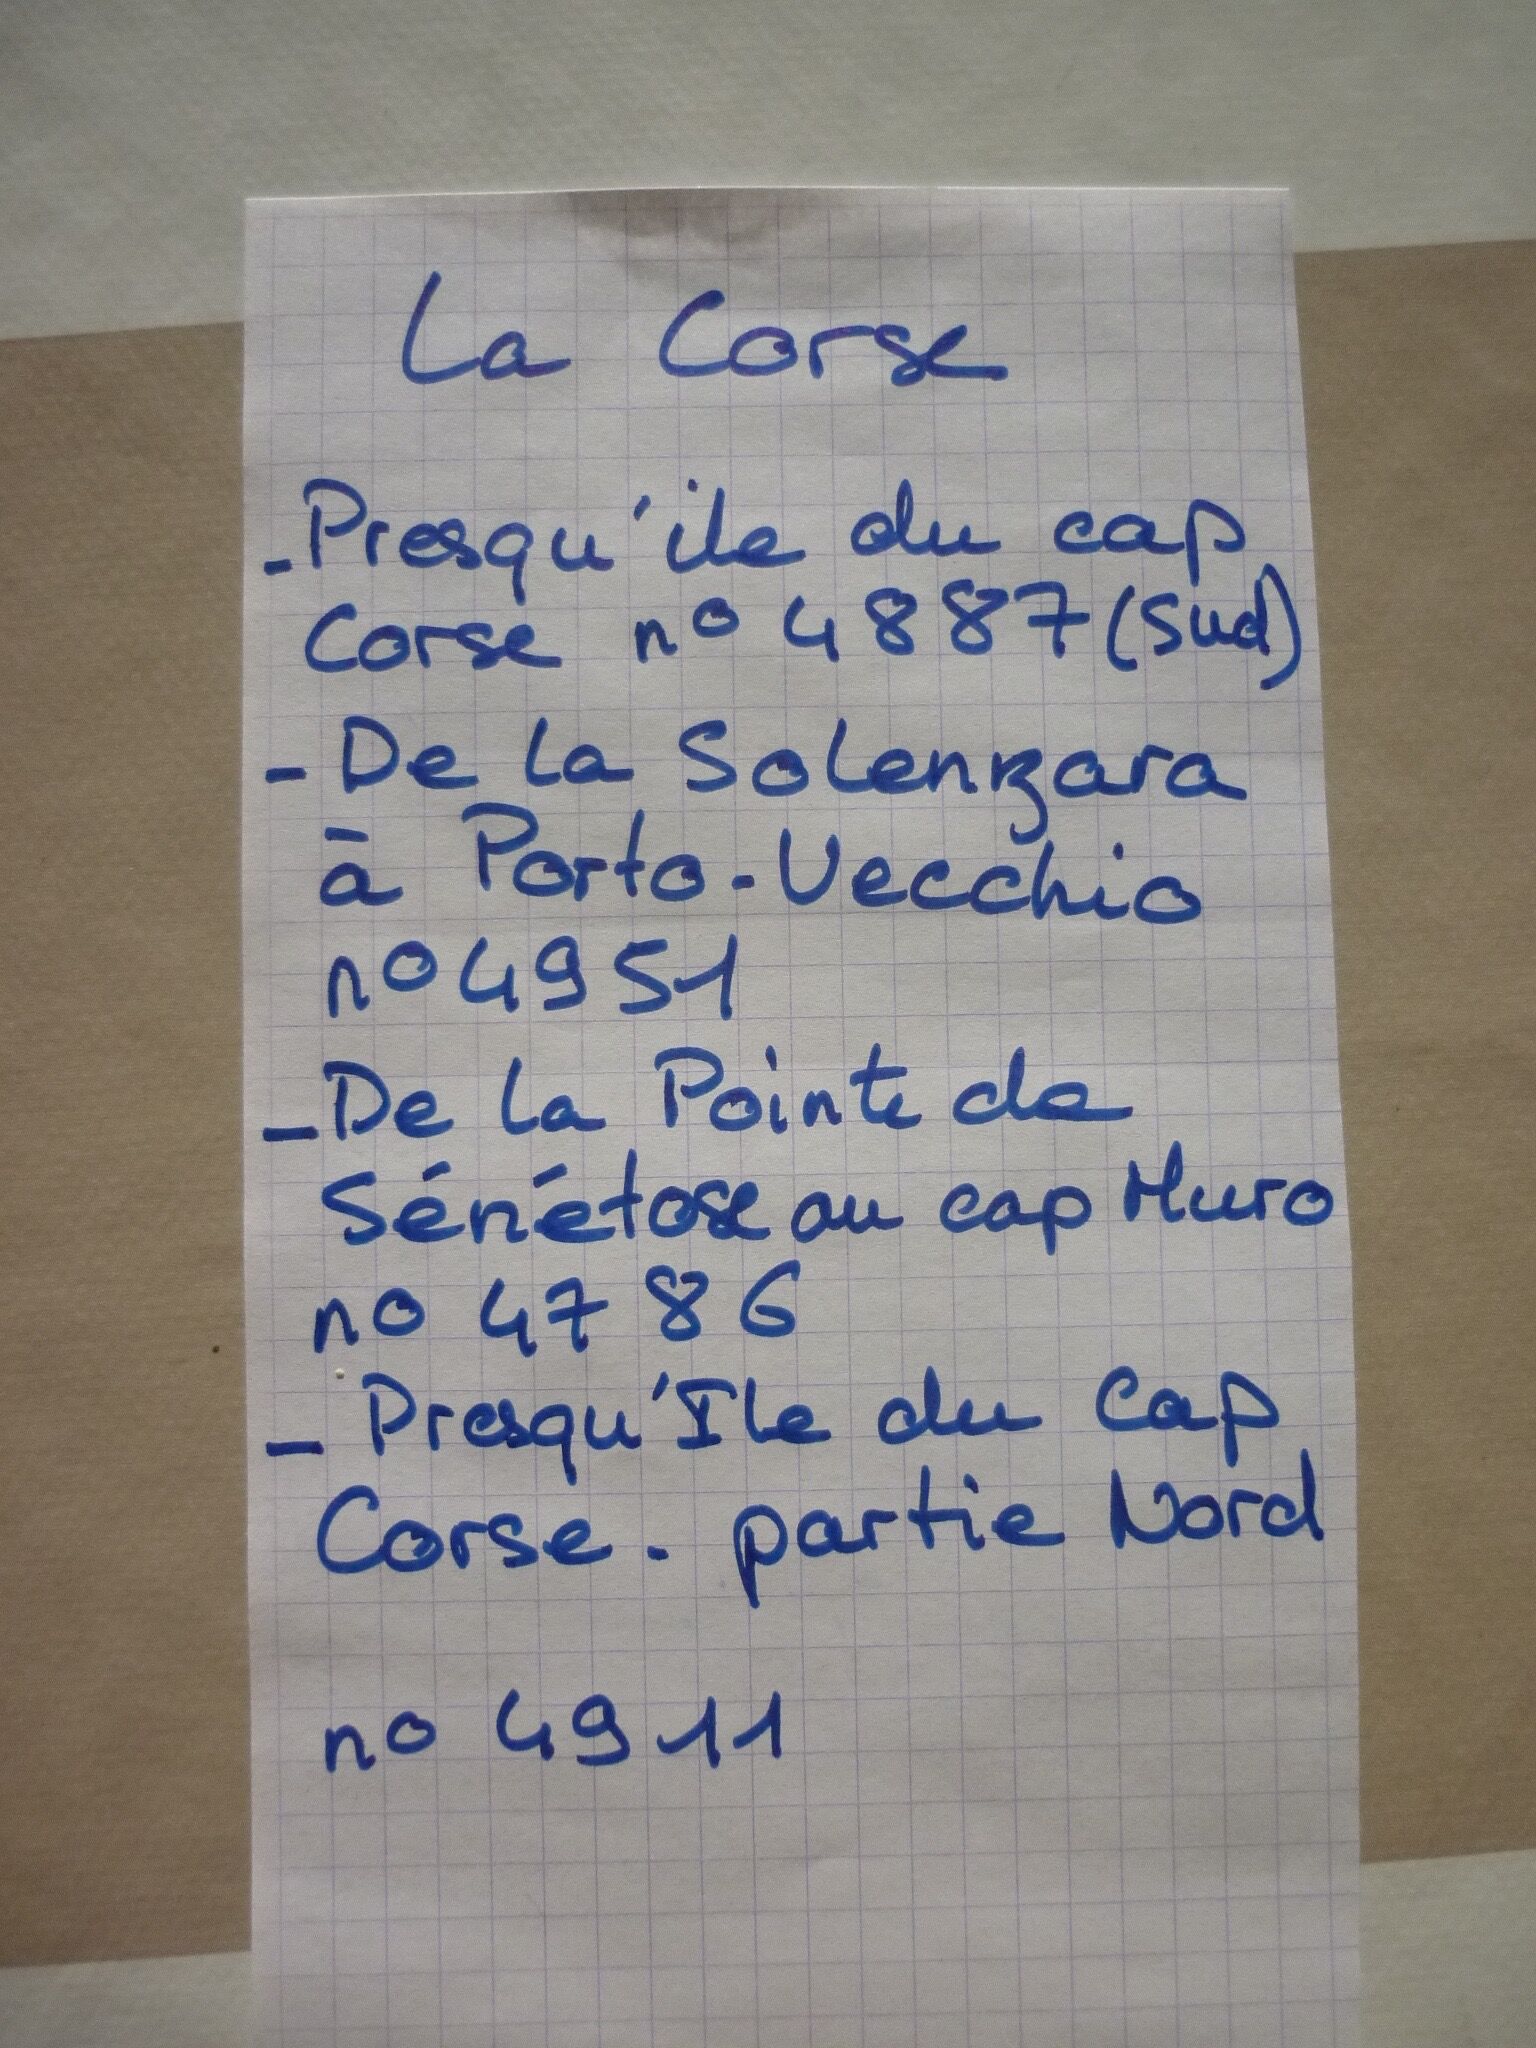 La Corse
- Presqu'ile du cap
Corse no 4887 (Sud)
- De la Solenzara
à Porto-Vecchio
no 4951
- De la Pointe de
Sénétose au cap Muro
no 4786
- Presqu'Ile du Cap
Corse - partie Nord
no 4911